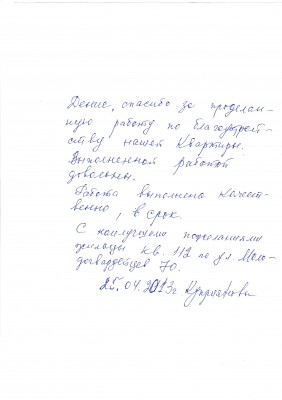 Денис, спасибо за проделан-
ную работу по благоустрой-
ству нашей Квартиры.
Выполненной работой
довольны.
Работа выполнена качест-
венно, в срок.
С наилучшими пожеланиями
жильцы кв. 112 по ул. Моло-
догвардейцев 70.
25.04.2013г Куприяновы